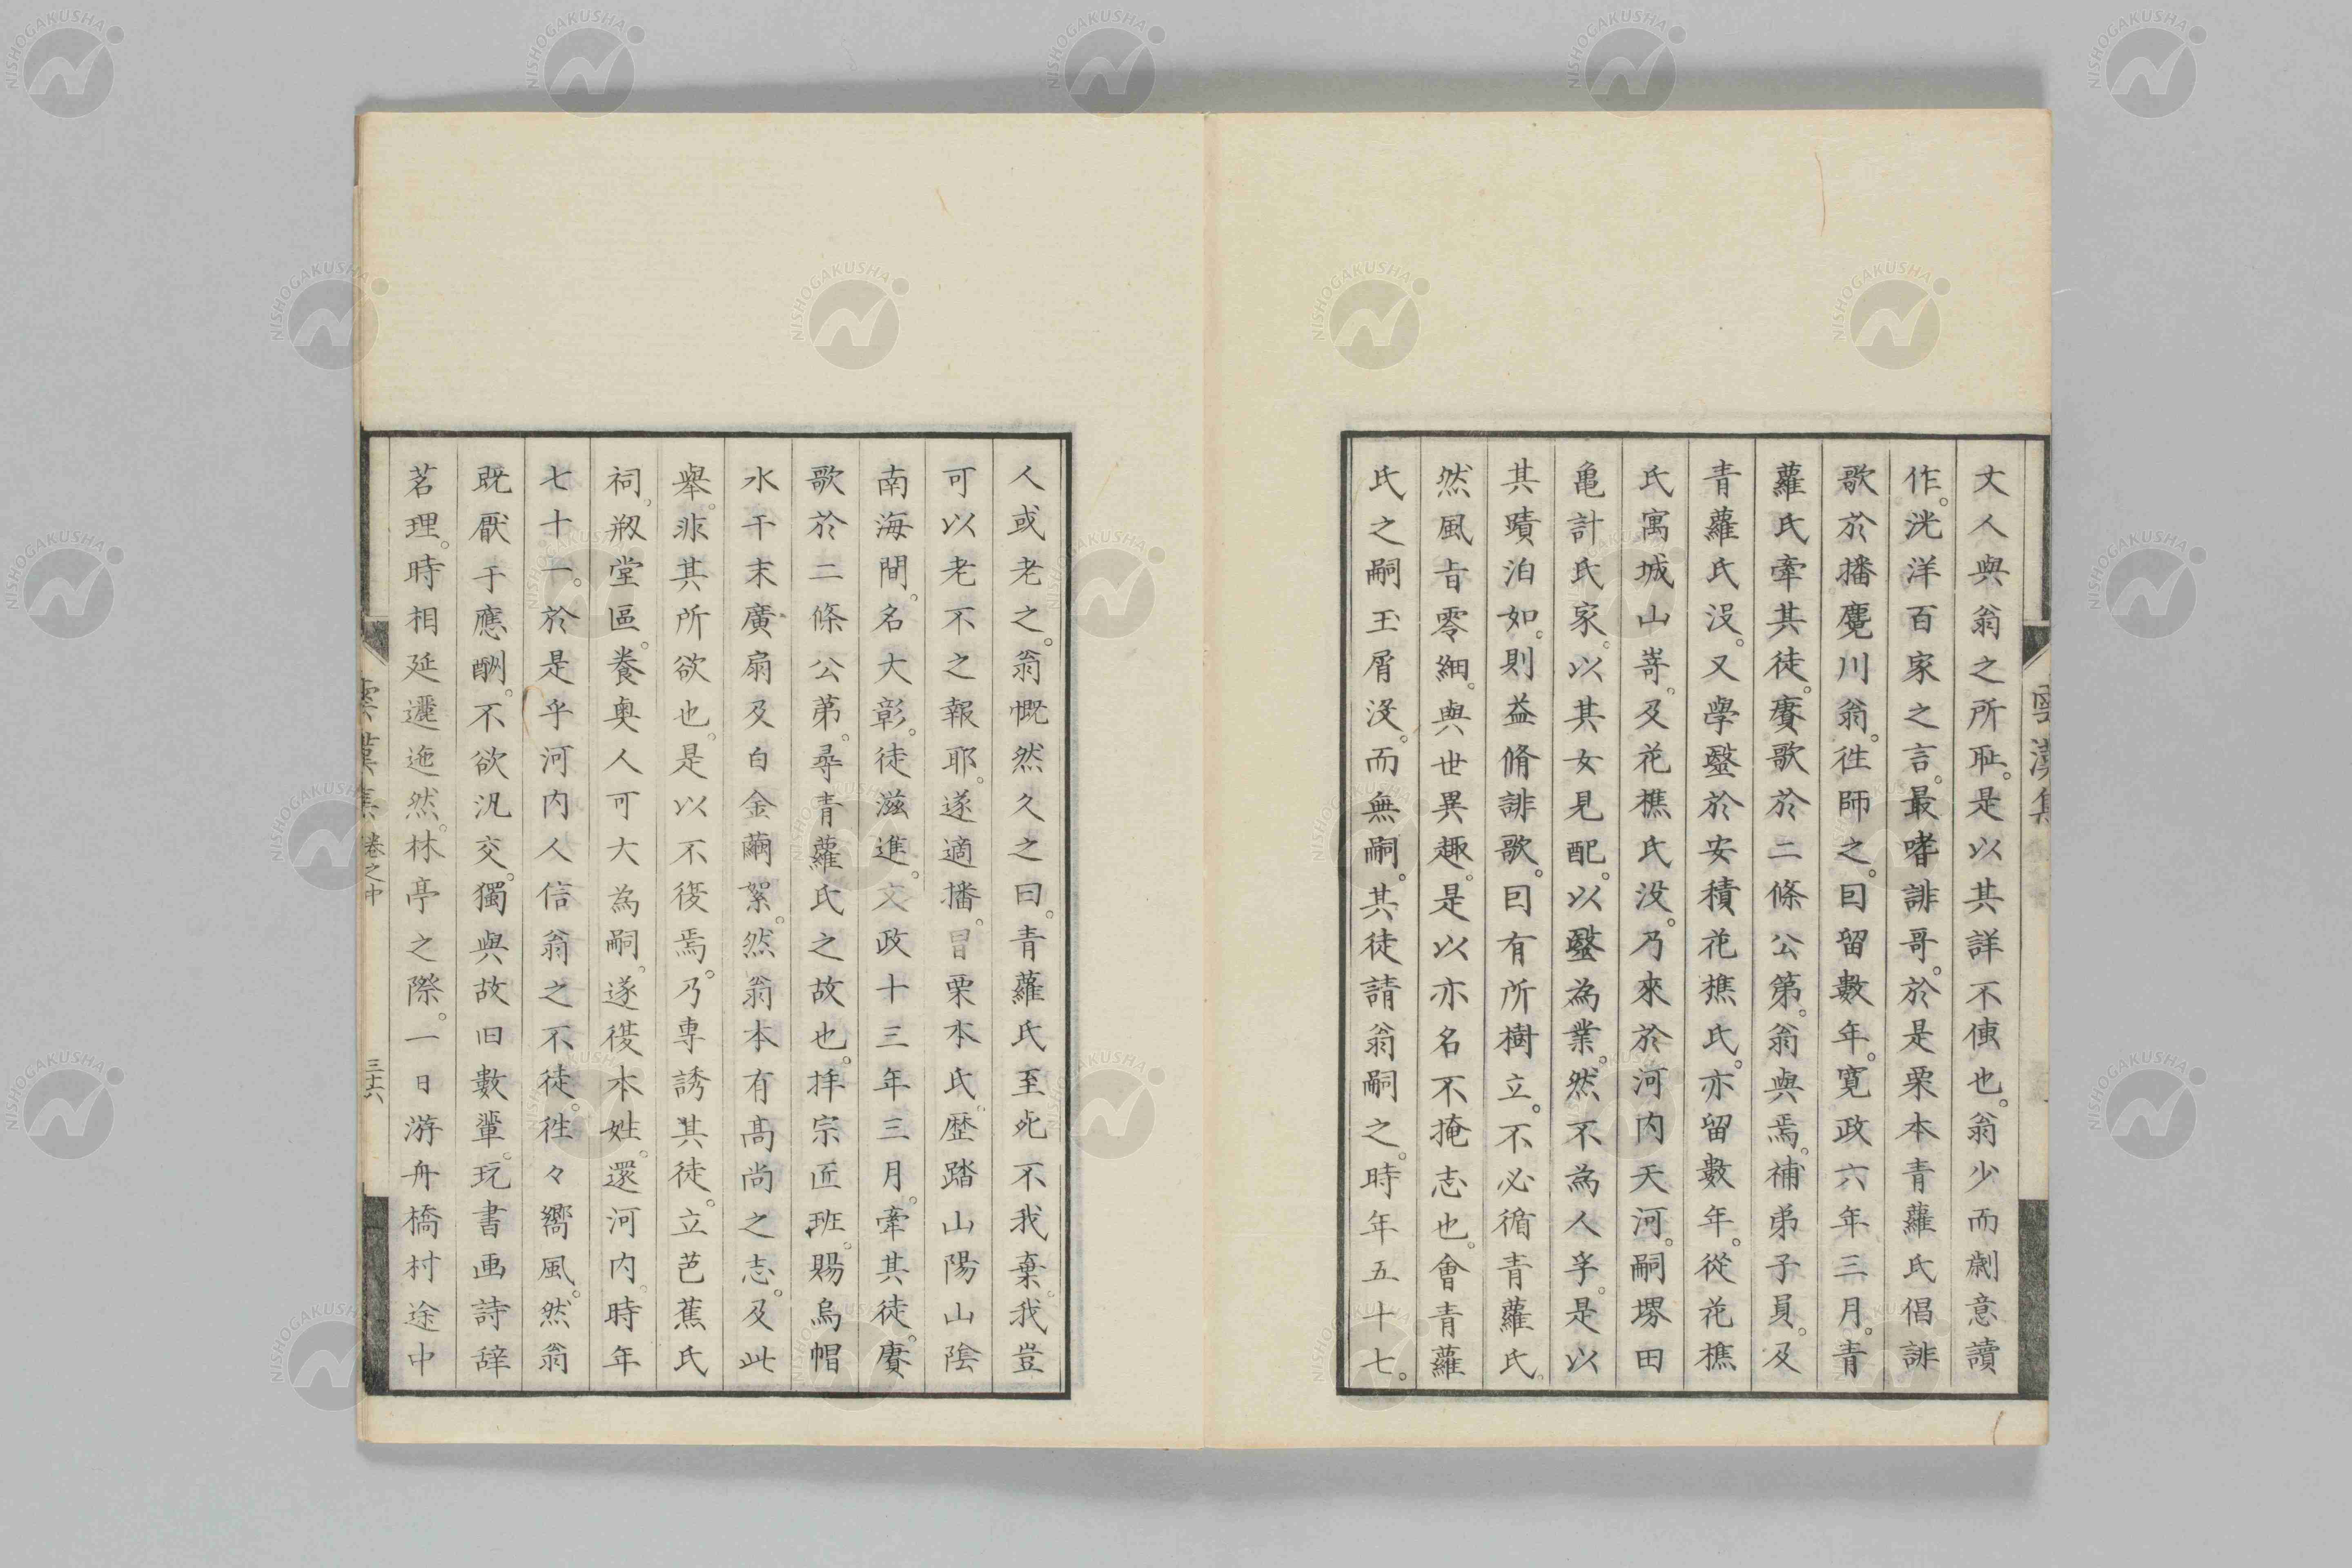 丈人與翁之所耻。是以其詳不傳也。翁少而劇意讀
作。洸洋百家之言。最嗜誹哥。於是栗本青蘿氏倡誹
歌於播麑川翁。徃師之。囙留數年。寛政六年三月。青
蘿氏牽其徒。賡歌於二條公第。翁與焉。補弟子員。及
青蘿氏沒。又學醫於安積花樵氏。亦留數年。從花樵
氏寓城山嵜。及花樵氏沒。乃來於河内天河。嗣堺田
亀計氏家。以其女見配。以醫為業。然不為人孚。是以
其蹟泊如。則益脩誹歌。囙有所樹立。不必循青蘿氏。
然風旨零細。與世異趣。是以亦名不掩志也。會青蘿
氏之嗣玉屑沒。而無嗣。其徒請翁嗣之。時年五十七。
人或老之。翁慨然久之曰。青蘿氏至死不我棄。我豈
可以老不之報耶。遂適播。冒栗本氏。歴踏山陽山陰
南海間。名大彰。徒滋進。文政十三年三月。牽其徒。賡
歌於二條公苐。尋青蘿氏之故也。拝宗匠班。賜烏帽
水干末廣扇及白金繭絮。然翁本有髙尚之志。及此
舉。非其所欲也。是以不復焉。乃専誘其徒。立芭蕉氏
祠。剏堂區。養奥人可大為嗣。遂復本姓。還河内。時年
七十一。於是乎河内人信翁之不徒。徃々嚮風。然翁
既厭于應酬。不欲汎交。獨與故旧數輩。玩書画詩辞
茗理。時相延邐迤然。林亭之際。一日游舟橋村途中
巻之中
三十六